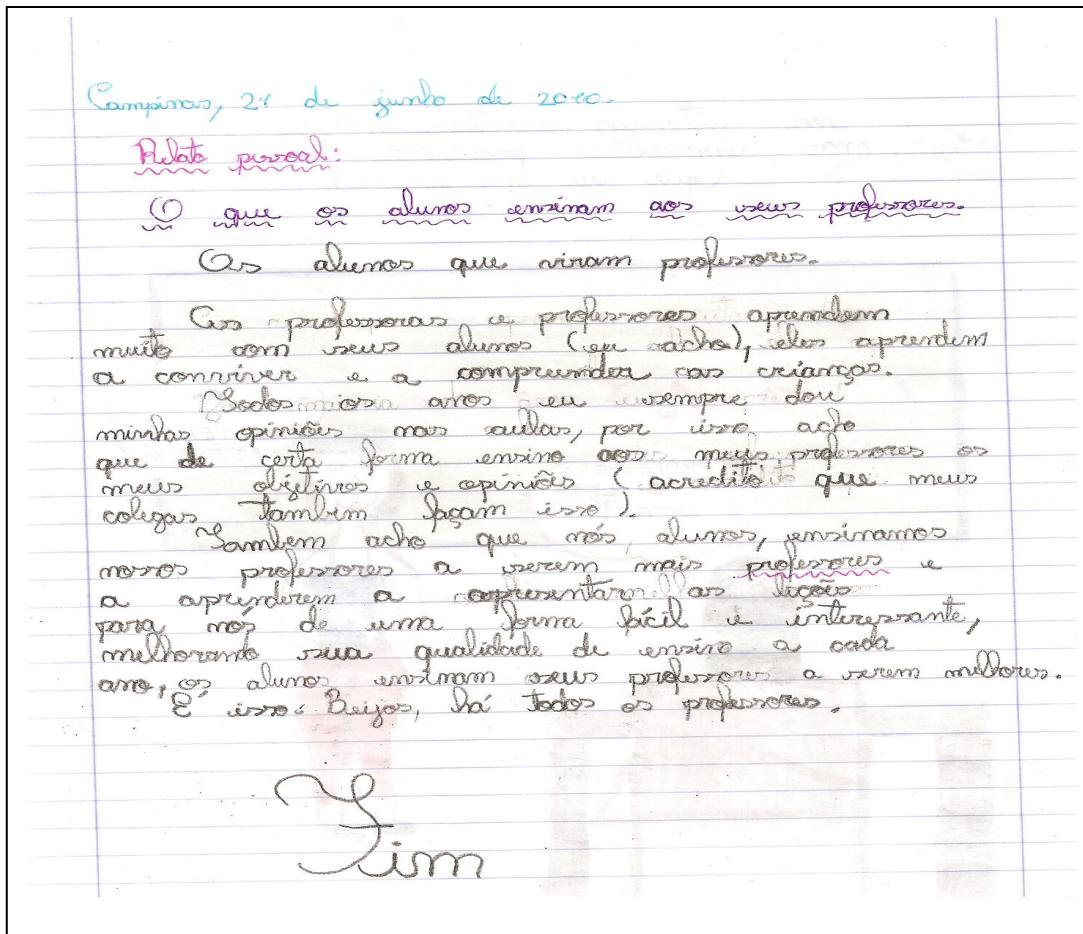 Campinas, 21 de junho de 2010.
Relato pessoal:
O que os alunos ensinam aos seus professores.
Os alunos que viram professores.
As professoras e professores aprendem
muito com seus alunos (eu acho), eles aprendem
a conviver e a compreender as crianças.
Todos os anos eu sempre dou
minhas opiniões nas aulas, por isso acho
que de certa forma ensino aos meus professores os
meus objetivos e opiniões (acredito que meus
colegas tambem façam isso).
Tambem acho que nós, alunos, ensinamos
nossos professores a serem mais professores e
a aprenderem a apresentar as lições
para nós de uma forma fácil e interessante,
melhorando sua qualidade de ensino a cada
ano, os alunos ensinam seus professores a serem melhores.
É isso. Beijos, há todos os professores.
Fim